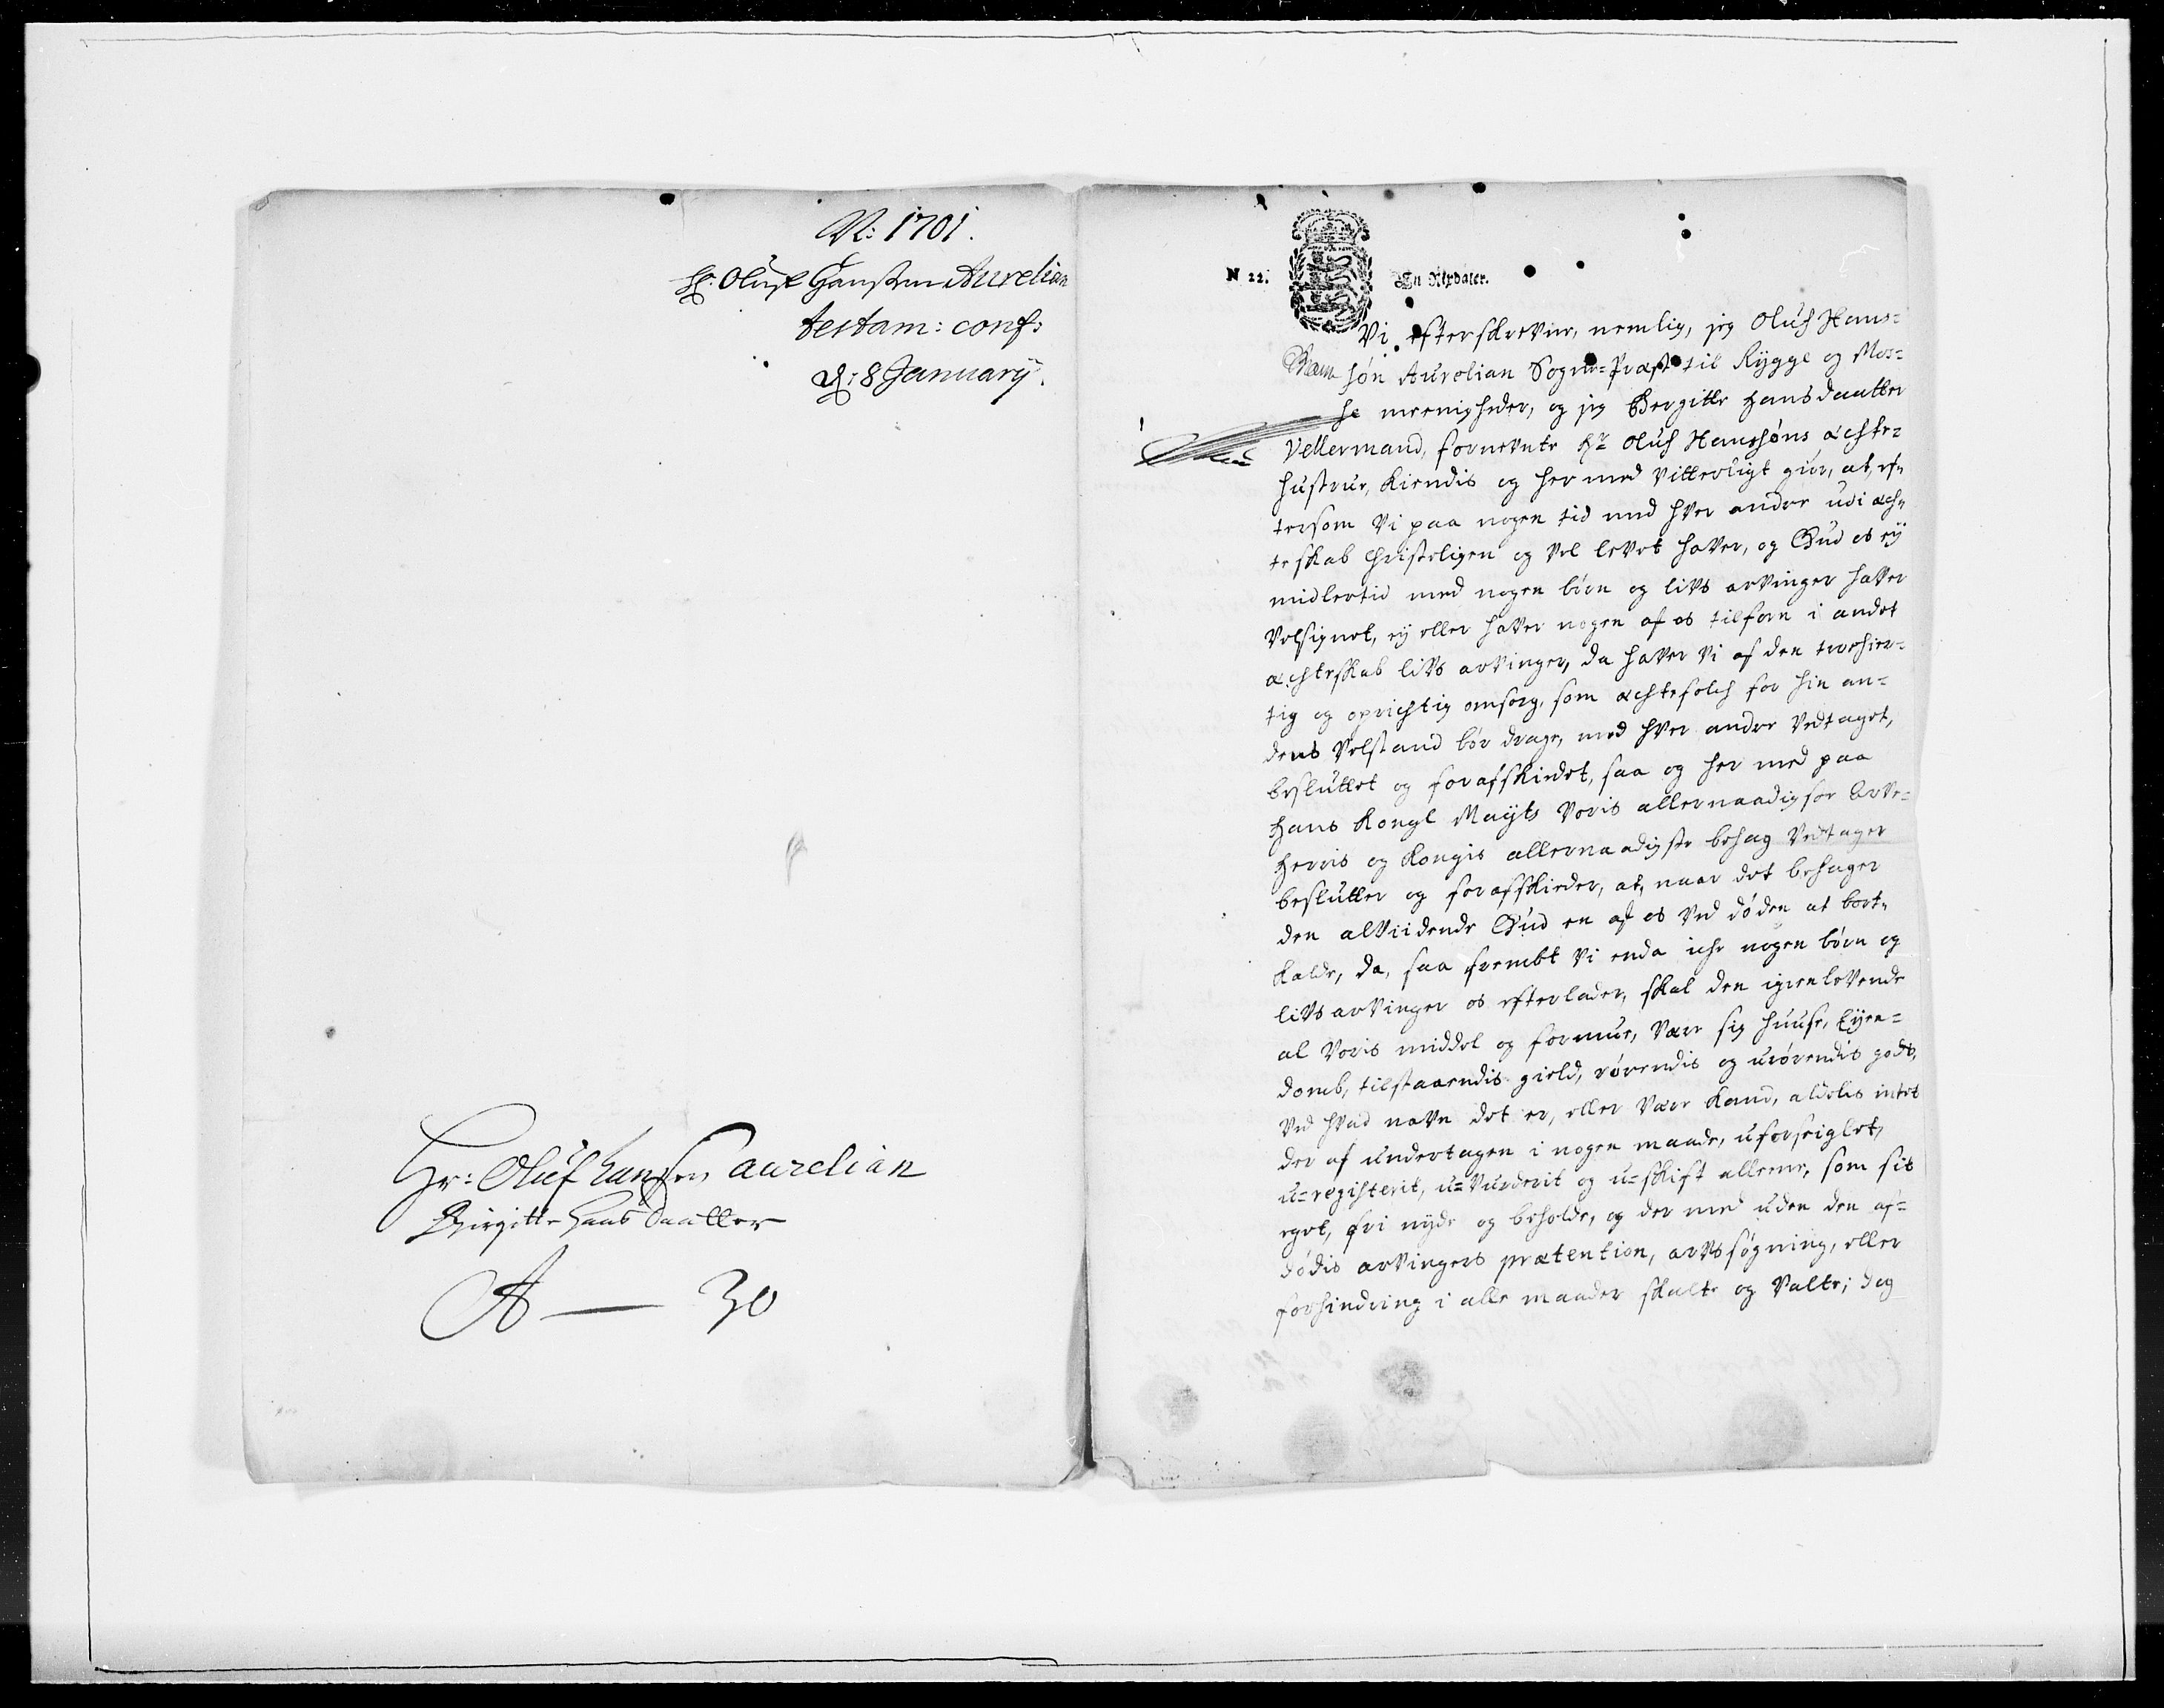 N: 1701.
Hr: Oluf Hanssen Aurelian
testam: conf:
d: 8 January.
Hr: Oluf hanssen aurelian
Birgitte Hans daatter
A — 30
N 22.
En Rixdaler.
Vi efterskrevne, nemlig, jeg Oluf Hans=
søn Aurelian Sogne=Præst til Rygge og Mos=
se meenigheder, og jeg Bergitte Hansdaatter
Vellermand, fornevnte Hr Oluf Hanssøns ächte=
hustrue, kiendis og her med vitterligt giør, at, ef=
tersom vi paa nogen tid med hver andre udi äch=
teskab Christeligen og vel levet haver, og Gud os ey
midlertid med nogen børn og livs arvinger haver
velsignet, ey eller haver nogen af os tilforn i andet
ächteskab livs arvinger, da haver vi af den troehier=
tig og oprichtig omsorg, som ächtefolch for hin an=
dens velstand bør drage, med hver andre vedtaget,
besluttet og forafskiedet, saa og her med paa
Hans Kongl Mayts voris allernaadigste Arve=
Herris og Kongis allernaadigste behag vedtager
beslutter og forafskieder, at, naar det behager
den alviidende Gud en af os ved døden at bort=
kalde, da, saa fremt vi enda iche nogen børn og
livs arvinger os efterlader, skal den igienlevende
al voris middel og formue, være sig huuse, Eyen=
domb, tilstaaendis gield, rørendis og urørendis gods,
ved hvad navn det er, eller være kand, aldelis intet
der af undertagen i nogen maade, uforseiglet,
u=registerit, u=vurderit og u=skift alleene, som sit
eget, fri nyde og beholde, og der med uden den af=
dødis arvingers prætention, arvs søgning, eller
forhindring i alle maader skalte og valte; dog